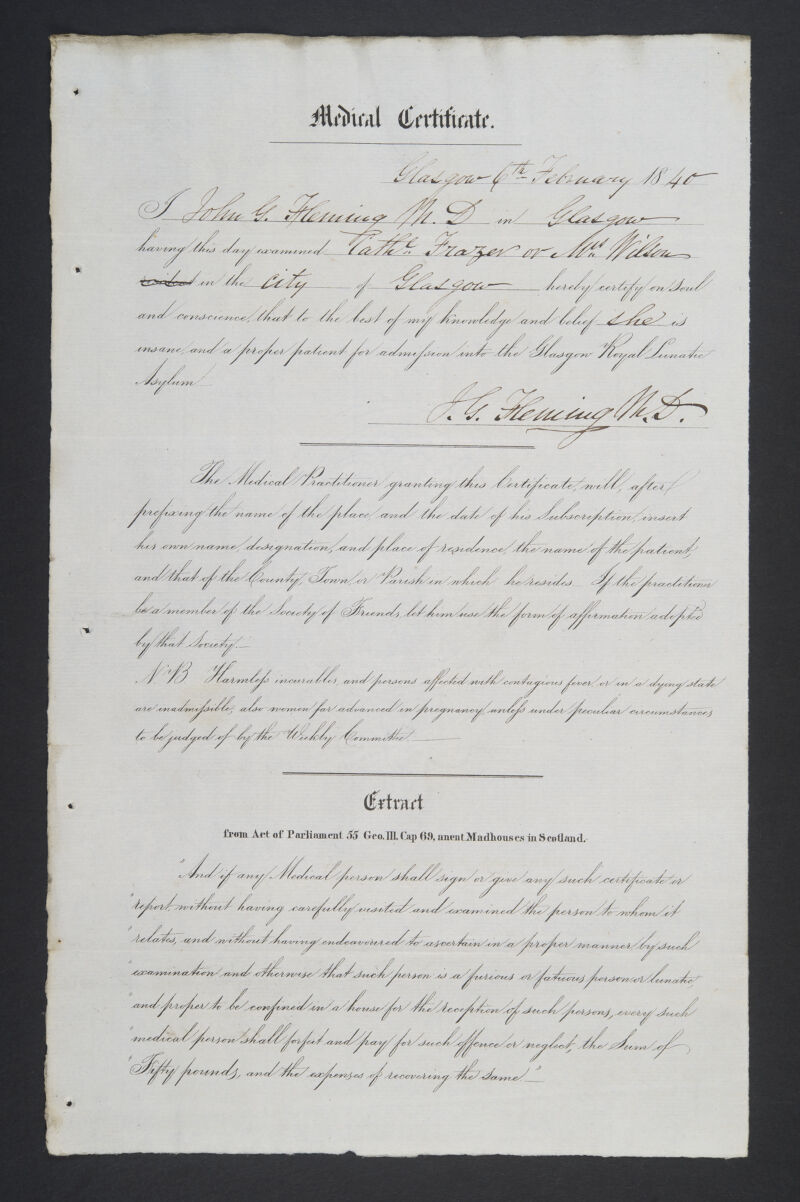 Medical Certificate.
Glasgow 6th February 1840
I John G. Fleming M.D in Glasgow
having this day examined Cathe. Frazer or Mrs Wilson
resident in the city of Glasgow hereby certify on soul
and conscience, that to the best of my knowledge and belief she is
insane, and a proper patient for admission into the Glasgow Royal Lunatic
Asylum
J. G. Fleming M.D.
The Medical Practitioner granting this Certificate, will, after
prefixing the name of the place, and the date of his Subscription, insert
his own name, designation, and place of residence, the name of the patient,
and that of the County, Town, or Parish in which he resides. If the practitioner
be a member of the Society of Friends, let him use the form of affirmation adopted
by that Society.—
N.B Harmleſs incurables, and persons affected with contagious fever, or in a dying state
are inadmiſsible, also women far advanced in pregnancy, unleſs under peculiar circumstances
to be judged of by the Weekly Committee
Extract
from Act of Parliament 55 Geo. III. Cap 69, anent Madhouses in Scotland.
"And if any Medical person shall sign or give any such certificate or
" report, without having carefully visited and examined the person to whom it
" relates, and without having endeavoured to ascertain in a proper manner by such
" examination and otherwise that such person is a furious or fatuous person or lunatic,
" and proper to be confined in a house for the reception of such persons, every such
" medical person shall forfeit and pay for such offence or neglect, the Sum of
" Fifty pounds, and the expenses of recovering the same—"